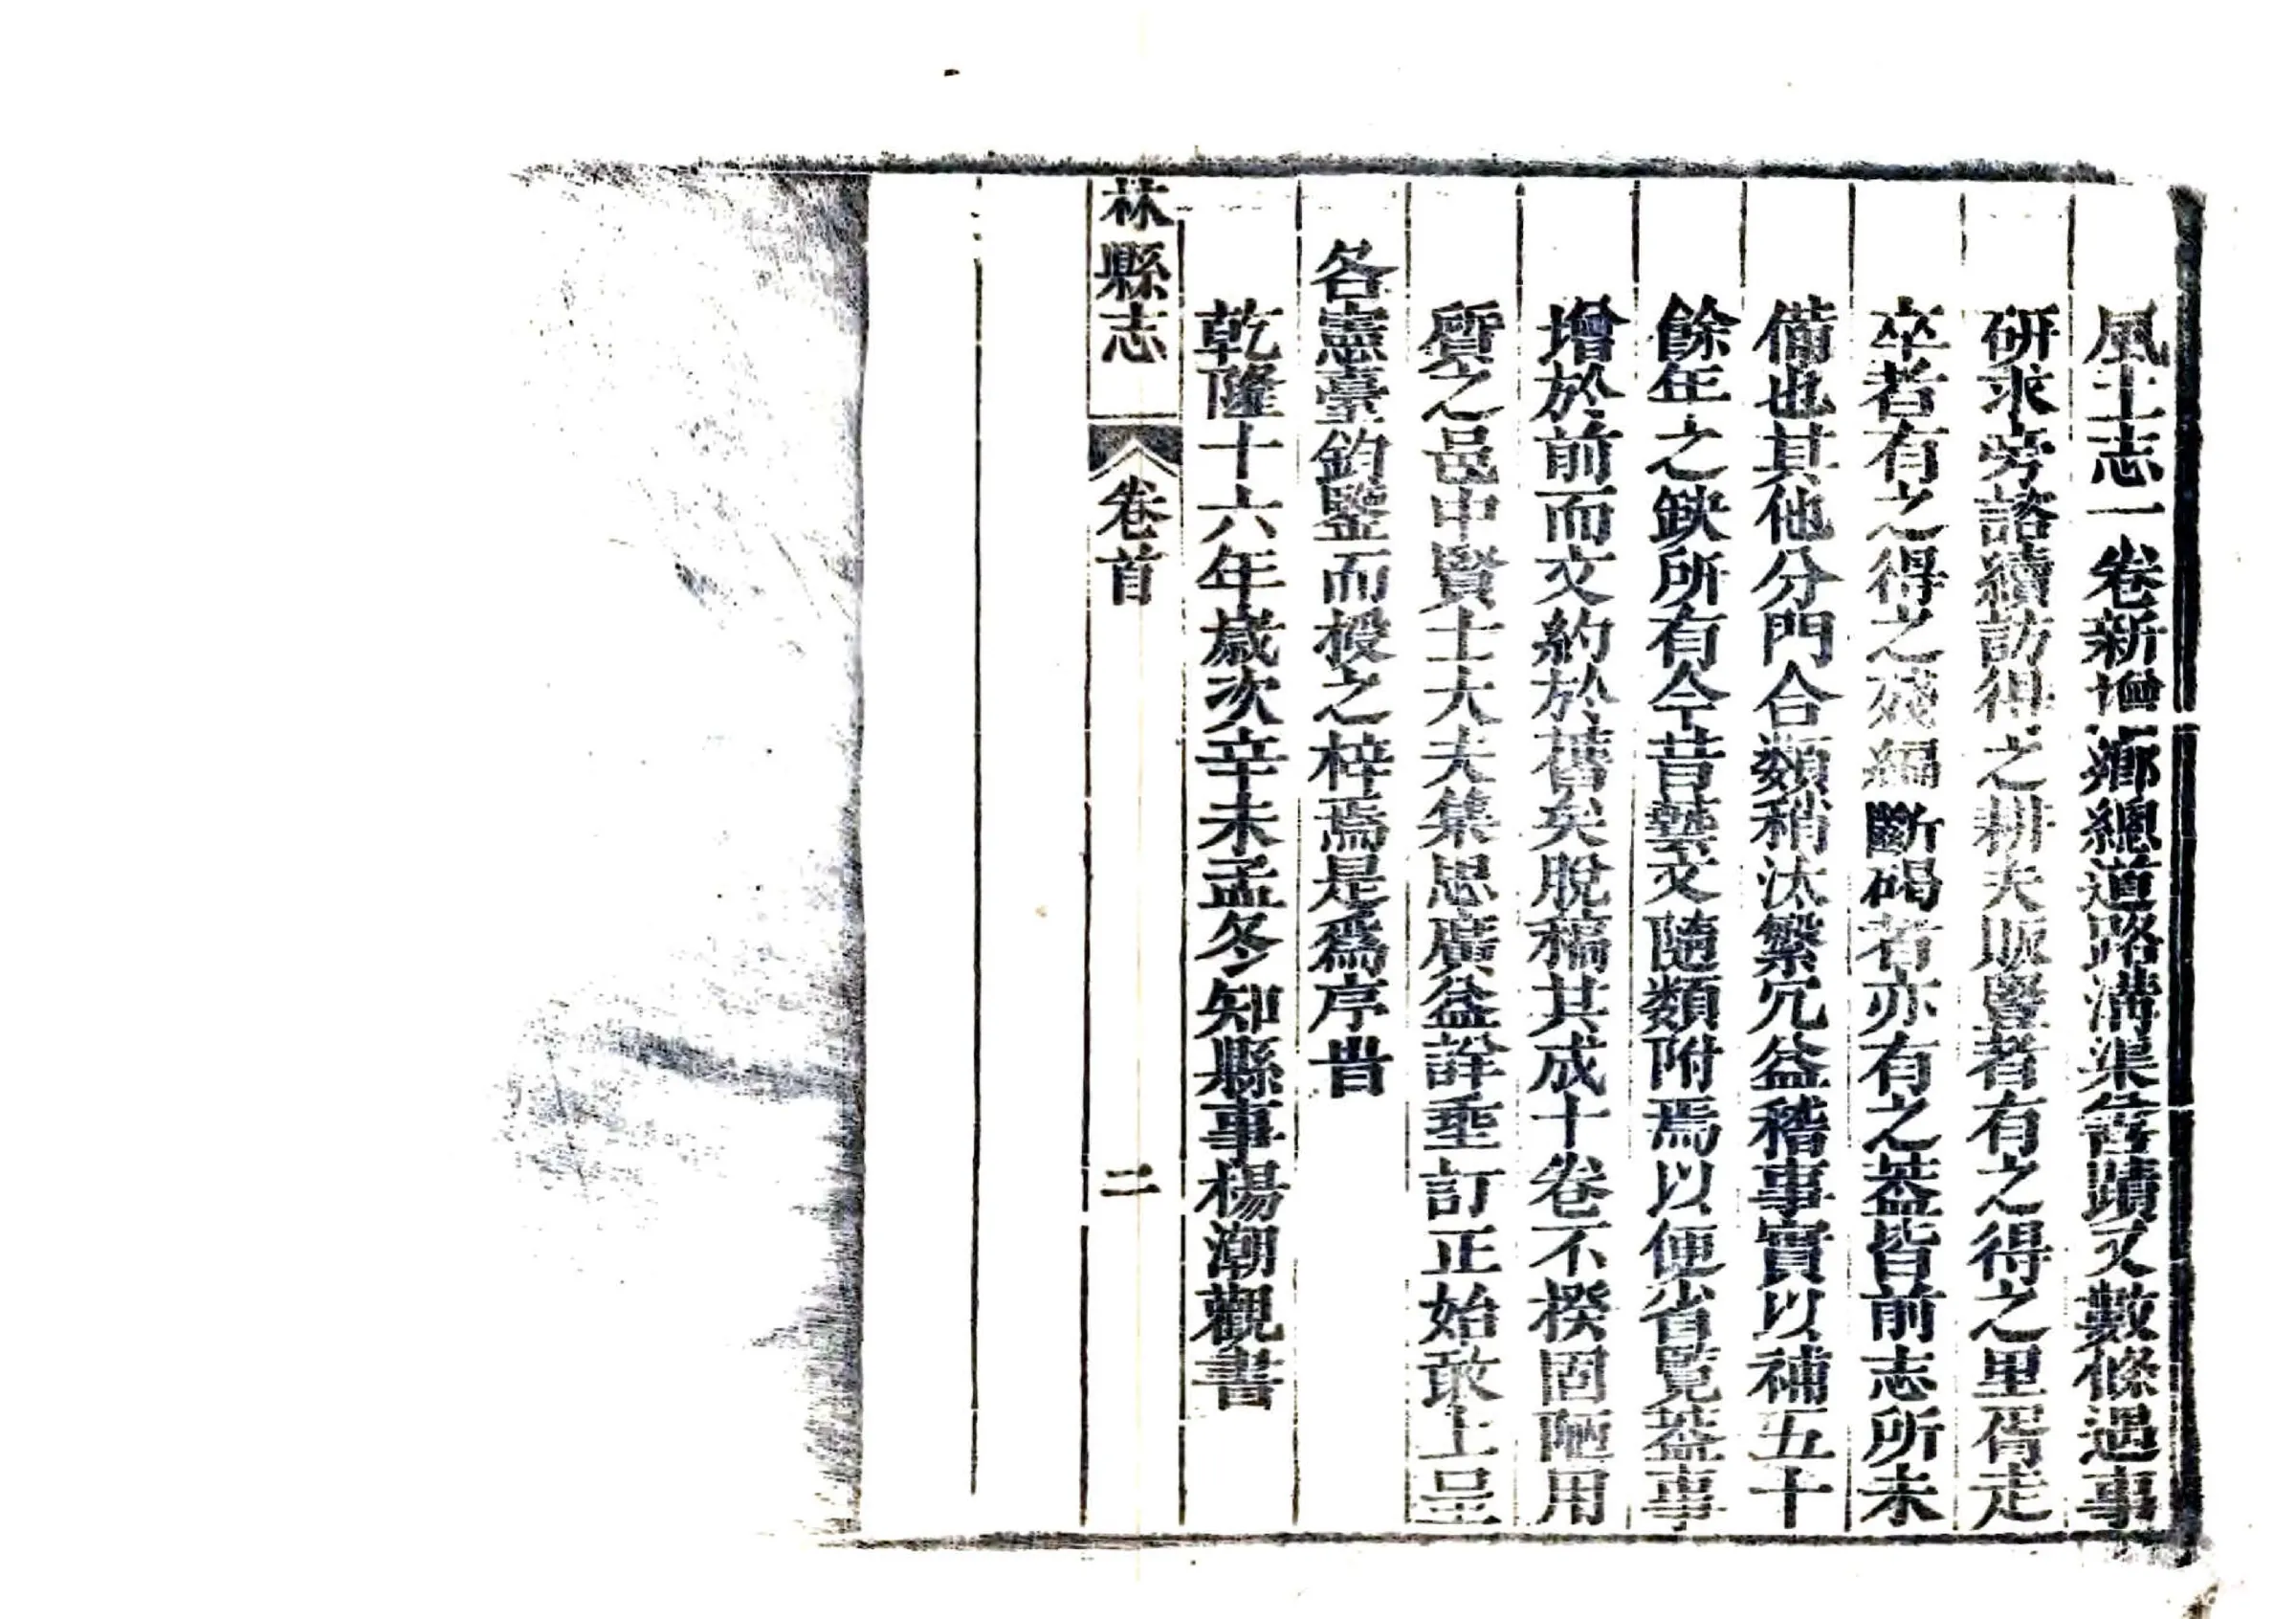 風土志一卷新增鄉總道路溝渠善蹟又數條遇事
研求旁諮續訪得之耕夫販豎者有之得之里胥走
卒者有之得之殘編斷碣者亦有之葢皆前志所未
備也其他分門合類稍汰繁冗益稽事實以補五十
餘年之缺所有今昔藝文隨類附焉以便省覽葢事
增於前而文約於舊矣脫稿其成十卷不揆固陋用
質之邑中賢士大夫集思廣益詳埀訂正始敢上呈
各憲臺鈞鑒而授之梓焉是爲序旹
乾隆十六年歲次辛未孟冬知縣事楊潮觀書
林縣志 卷首 二